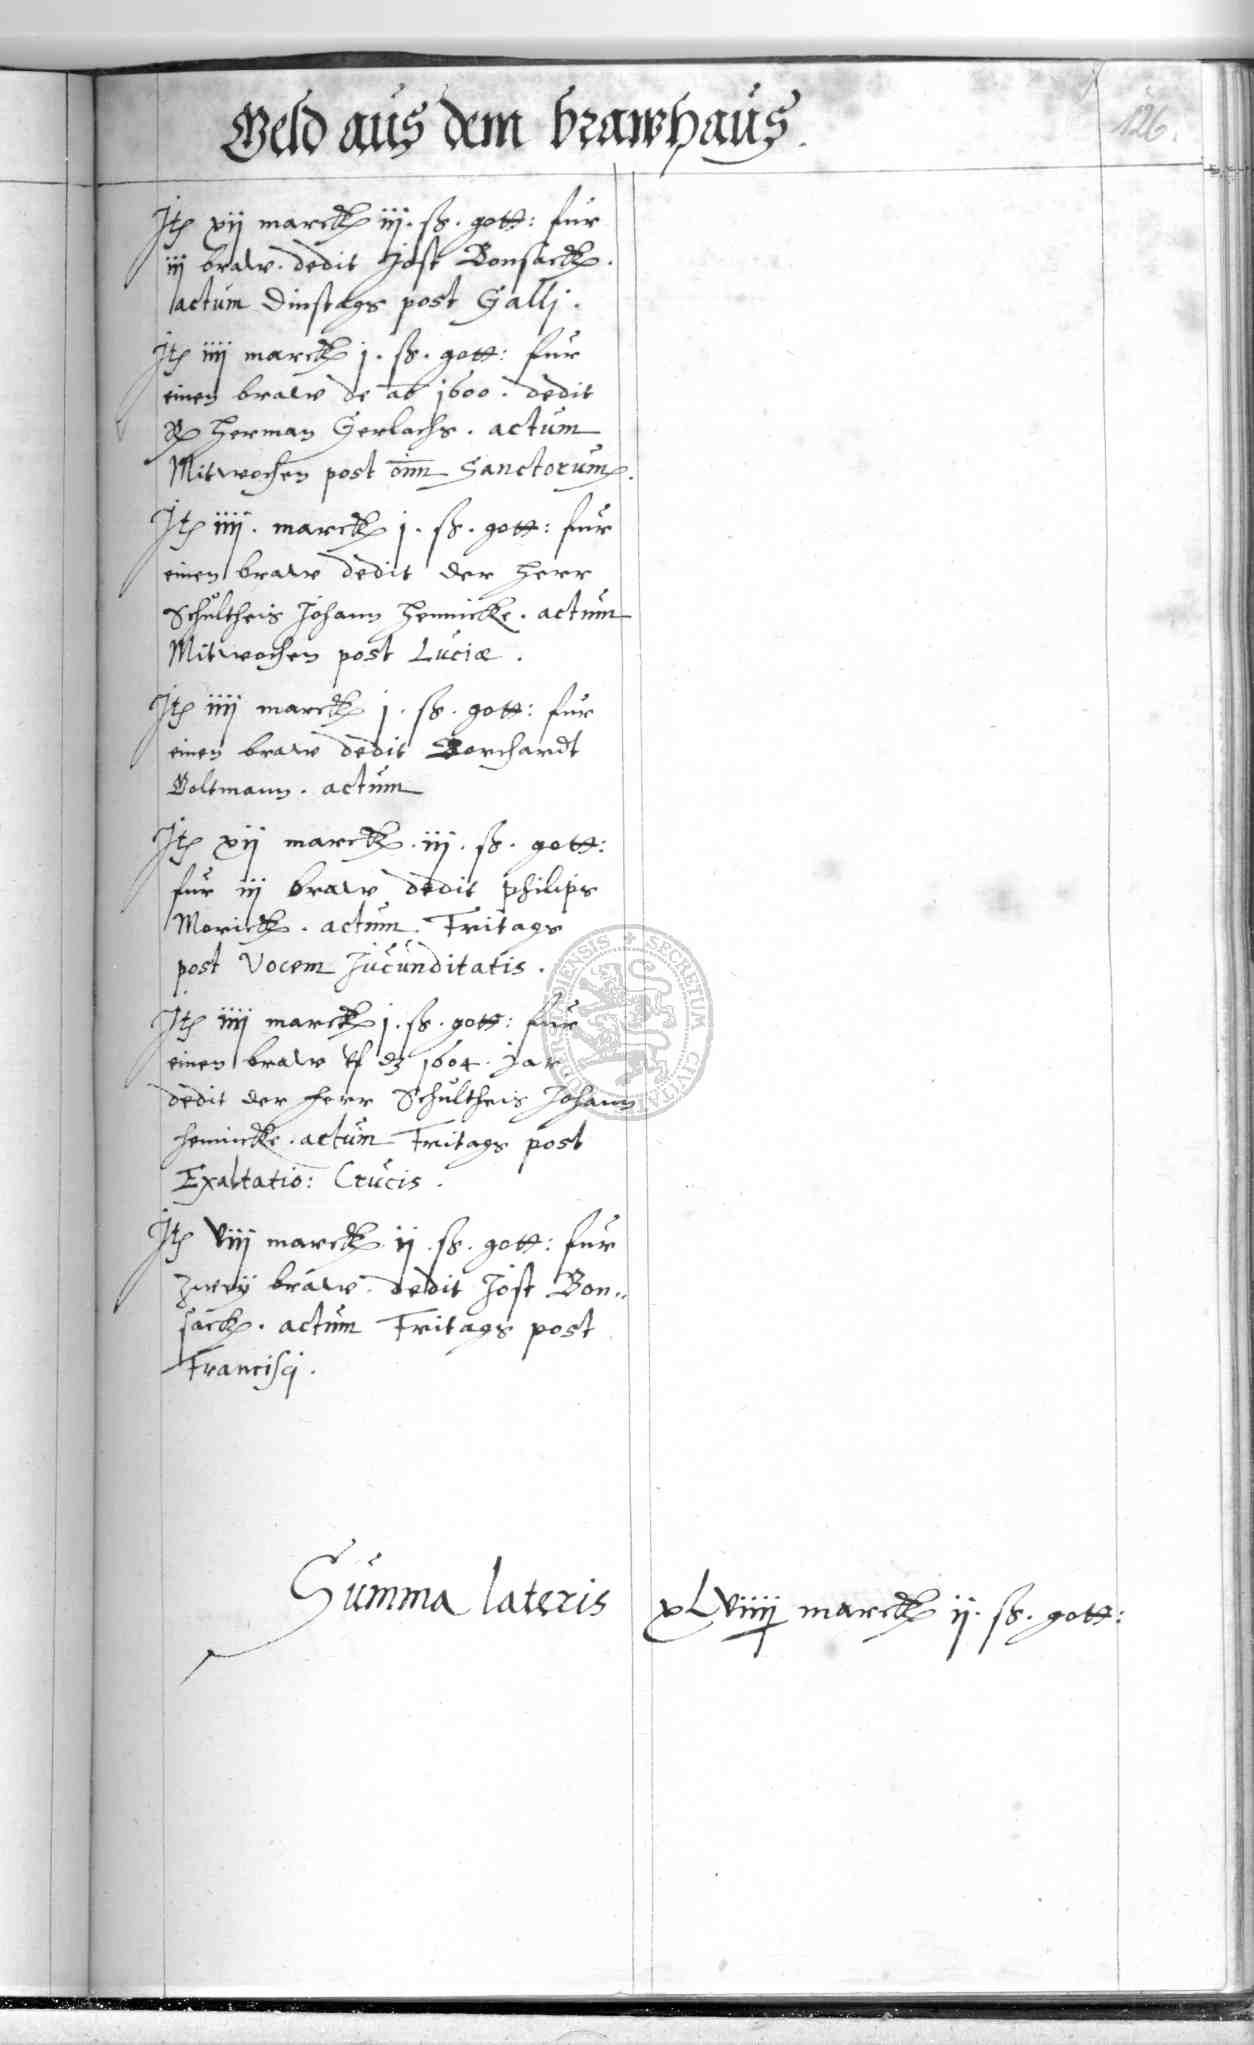 Geld aus dem brawhaus.
126.
Jtē xij marck iij. ß. gott: fur
iij braw. dedit Jost Bonsack.
actum Dinstags post Galli.
Jtē iiij marck j. ß. gott: fur
einen braw de aō 1600. dedit
Herman Gerlachs. actum
Mitwochen post oīm Sanctorum.
Jtē iiij. marck j. ß. gott: fur
einen braw dedit der Herr
Schultheis Johann Hennicke. actum
Mitwochen post Luciæ.
Jtē iiij marck j. ß. gott: fur
einen braw dedit Borchardt
Goltmann. actum
Jtē xij marck. iij. ß. gott:
fur iij braw dedit Philips
Morick. actum. Fritags
post Vocem Jucunditatis.
Jtē iiij marck j. ß. gott: fur
einen braw vf dz 1604. Jar.
dedit der Herr Schultheis Johann
Hennicke. actum Fritags post
Exaltatio: Crucis.
Jtē viij marck ij. ß. gott: fur
zweÿ braw. dedit Jost Bon-
sack. actum Fritags post
Francisci.
Summa lateris xLviiij marck ij. ß. gott:
SECRETUM CIVITATIS